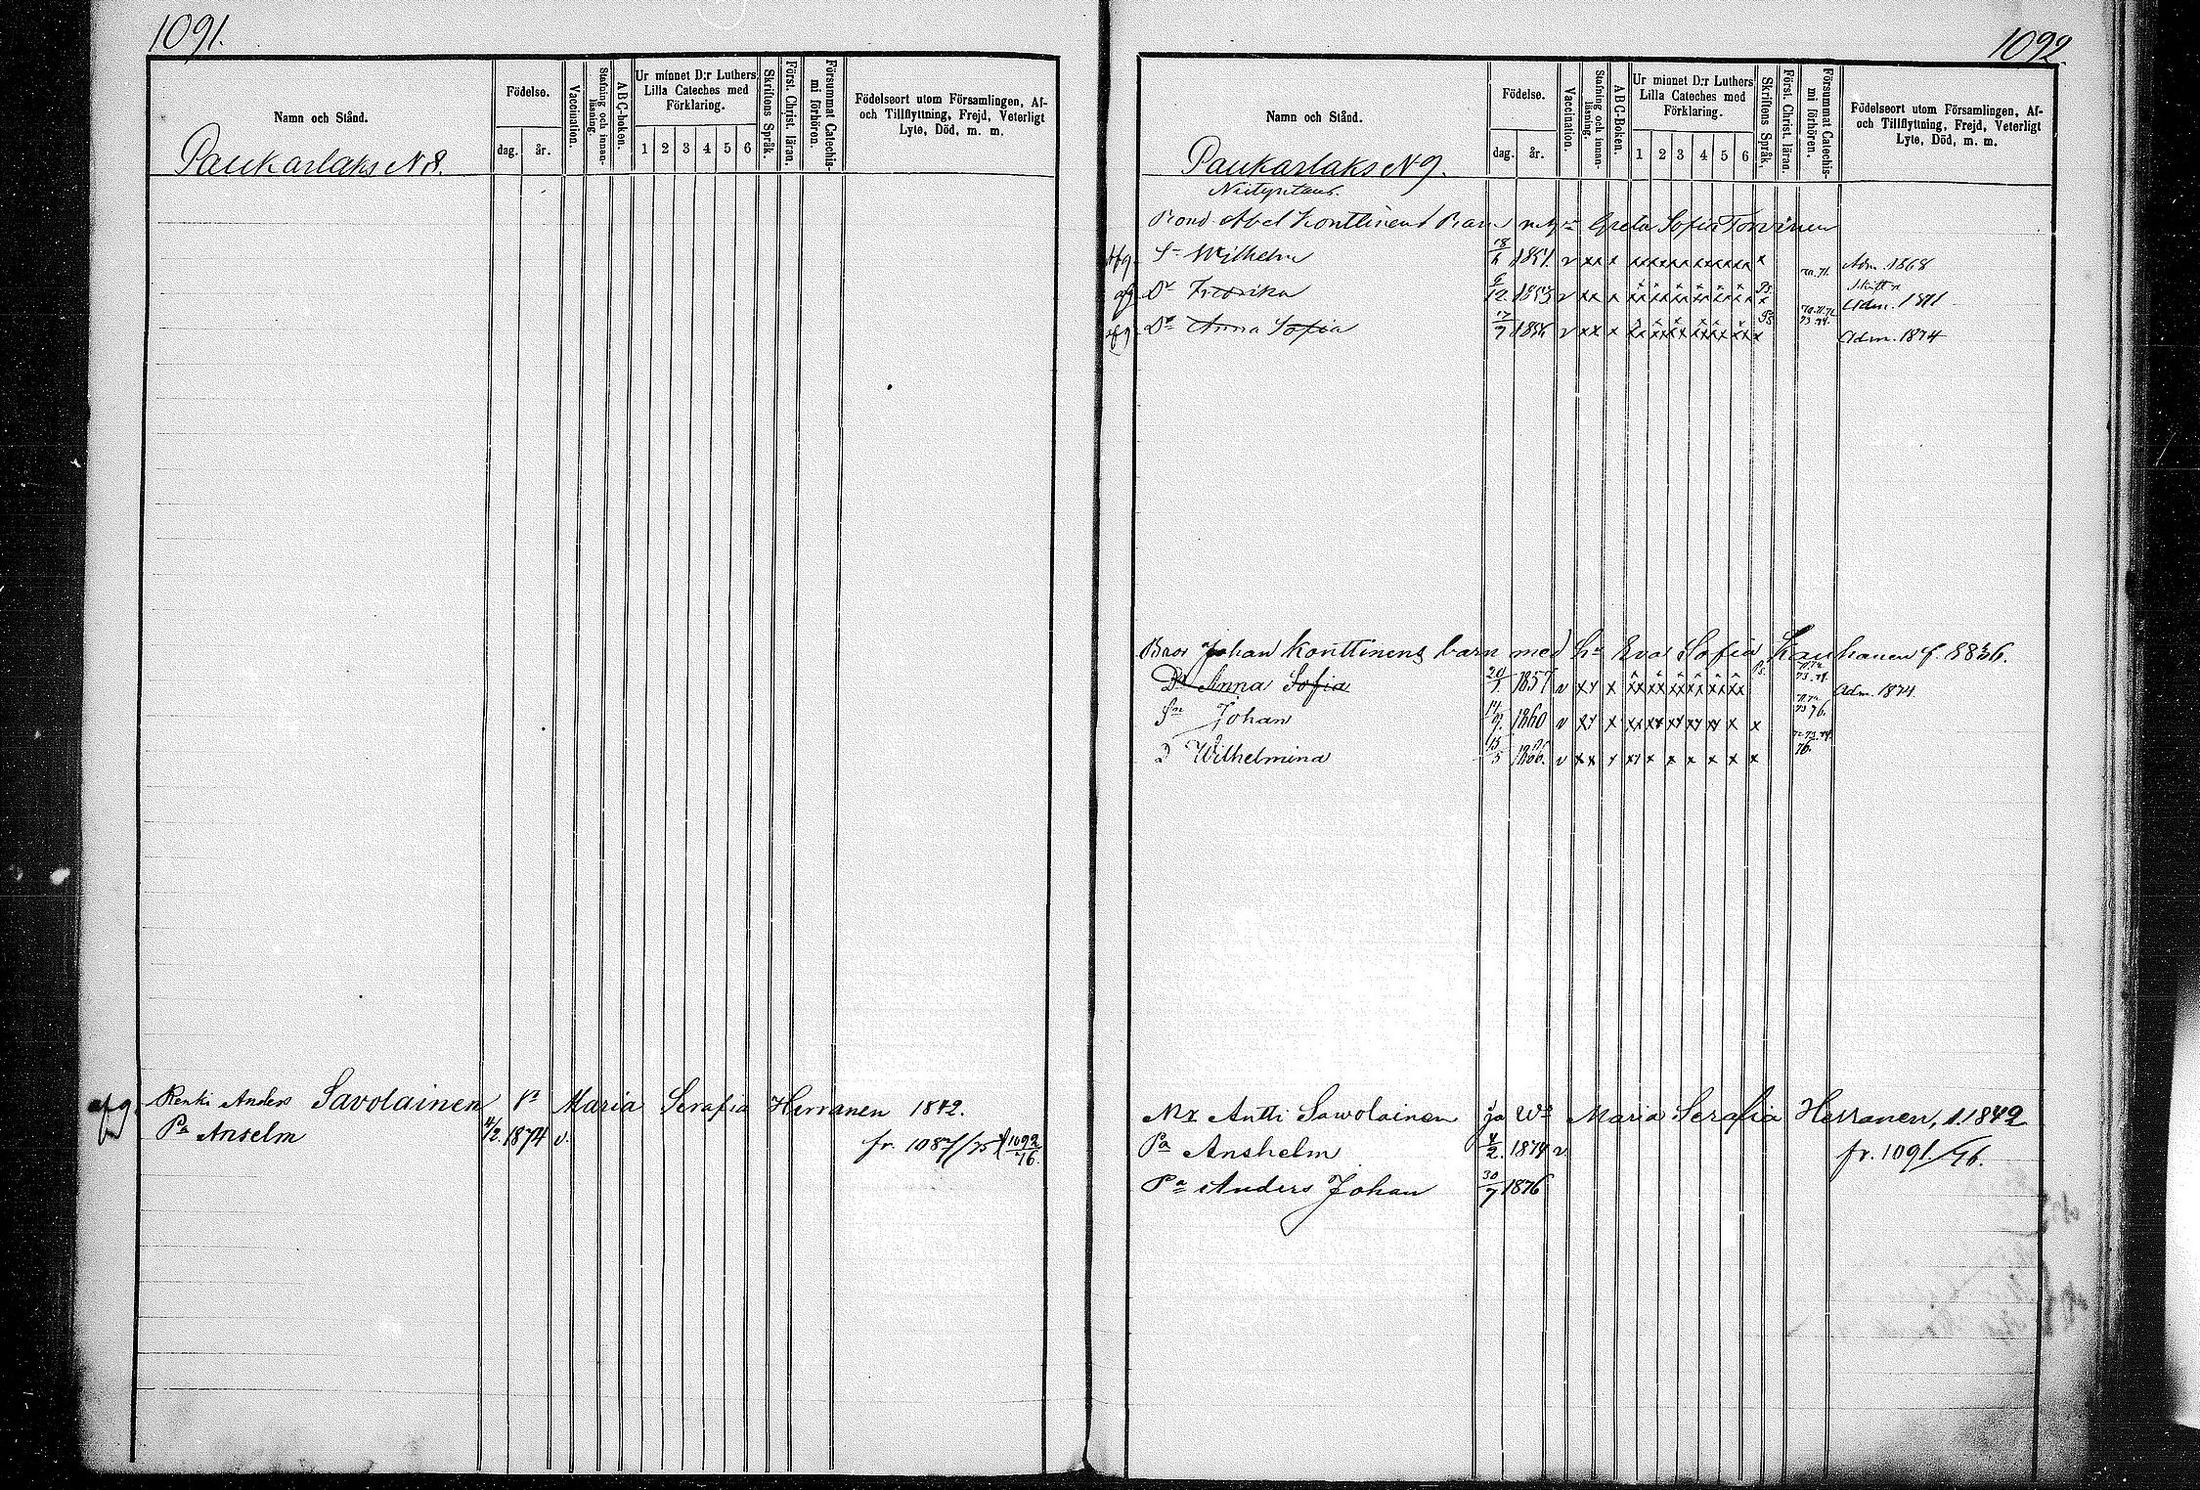 1091.
Namn och Stånd.
Födelse.
dag. år.
Vaccination.
Stafning och innan-läsning.
ABC-boken.
Ur minnet D:r Luthers Lilla Cateches med Förklaring.
1 2 3 4 5 6
Skriftens Språk.
Först. Christ. läran.
Försummat Catechis-mi förhören.
Födelseort utom Församlingen, Af- och Tillflyttning, Frejd, Veterligt Lyte, Död, m. m.
Paukarlaks N 8.
afg. Renki Anders Savolainen Maria Serafia Herranen 1842.
Pa Anselm 4/2. 1874 v. fr. 1087/75 1092/76.
1092.
Namn och Stånd.
Födelse.
dag. år.
Vaccination.
Stafning och innan-läsning.
ABC-Boken.
Ur minnet D:r Luthers Lilla Cateches med Förklaring.
1 2 3 4 5 6
Skriftens Språk.
Först. Christ. läran.
Försummat Catechis-mi förhören.
Födelseort utom Församlingen, Af- och Tillflyttning, Frejd, Veterligt Lyte, Död, m. m.
Paukarlaks N 9.
Abel Konttinens Barn Greta Sofia Torvinen
afg. Sn Wilhelm 1851. v xx x Adm. 1868
afg. Dr Fredrika 1853 v xx x Adm. 1871
afg. Dr Anna Sofia 17/7 1856 v xx x Adm. 1874
Bror Johan Konttinens barn med Eva Sofia Kauhanen f. 1836.
Dr Anna Sofia 1857 v xx x Adm. 1874.
Sn Johan 1860 v xx x
D Wilhelmina 1866. v xx x
Antti Sawolainen ja Wo Maria Serafia Herranen, 1842
Pa Anshelm 4/2. 1874 v fr. 1091/76.
Pa Anders Johan 30/7 1876